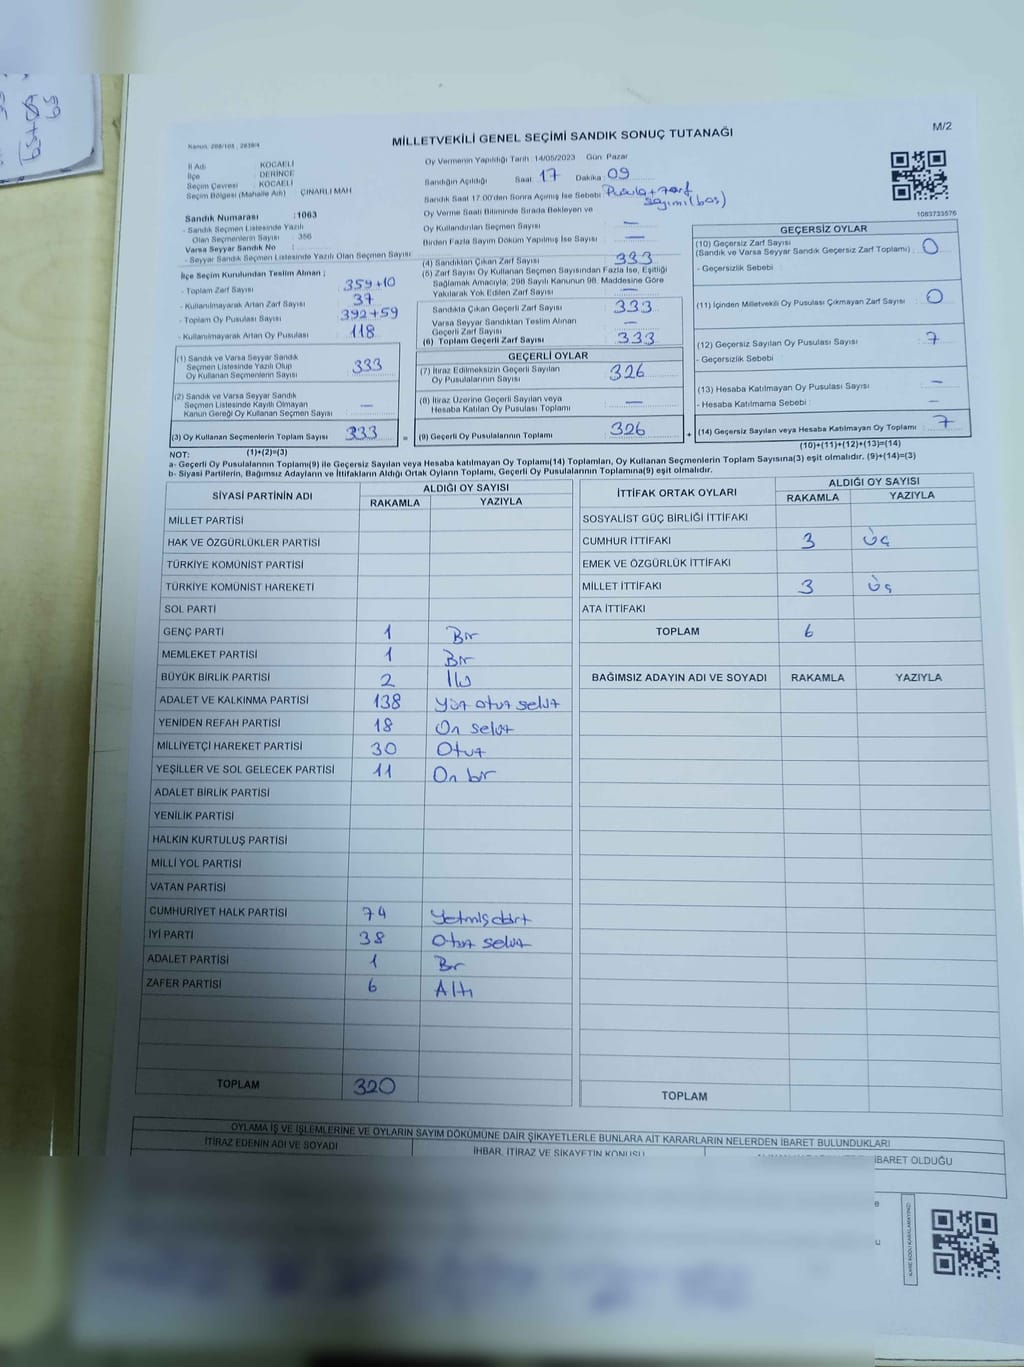 MİLLETVEKİLİ GENEL SEÇİMİ SANDIK SONUÇ TUTANAĞI
M/2
İl Adı : KOCAELİ
İlçe : DERİNCE
Seçim Çevresi : KOCAELİ
Seçim Bölgesi (Mahalle Adı) : ÇINARLI MAH
Sandık Numarası : 1063
- Sandık Seçmen Listesinde Yazılı
Olan Seçmenlerin Sayısı : 356
Varsa Seyyar Sandık No :
- Seyyar Sandık Seçmen Listesinde Yazılı Olan Seçmen Sayısı:
Oy Vermenin Yapıldığı Tarih :14/05/2023 Gün: Pazar
Sandığın Açıldığı Saat 17 Dakika 09
Sandık Saat 17:00'den Sonra Açımış İse Sebebi: Pusula + zarf
sayımı (boş)
Oy Verme Saati Bitiminde Sırada Bekleyen ve
Oy Kullandırılan Seçmen Sayısı —
Birden Fazla Sayım Döküm Yapılmış İse Sayısı —
1083733576
İlçe Seçim Kurulundan Teslim Alınan ;
- Toplam Zarf Sayısı 359+10
- Kullanılmayarak Artan Zarf Sayısı 37
- Toplam Oy Pusulası Sayısı 392+59
- Kullanılmayarak Artan Oy Pusulası 118
(1) Sandık ve Varsa Seyyar Sandık
Seçmen Listesinde Yazılı Olup
Oy Kullanan Seçmenlerin Sayısı 333
(2) Sandık ve Varsa Seyyar Sandık
Seçmen Listesinde Kayıtlı Olmayan
Kanun Gereği Oy Kullanan Seçmen Sayısı —
(3) Oy Kullanan Seçmenlerin Toplam Sayısı 333
(4) Sandıktan Çıkan Zarf Sayısı 333
(5) Zarf Sayısı Oy Kullanan Seçmen Sayısından Fazla İse, Eşitliği
Sağlamak Amacıyla; 298 Sayılı Kanunun 98. Maddesine Göre
Yakılarak Yok Edilen Zarf Sayısı —
Sandıkta Çıkan Geçerli Zarf Sayısı 333
Varsa Seyyar Sandıktan Teslim Alınan
Geçerli Zarf Sayısı —
(6) Toplam Geçerli Zarf Sayısı 333
GEÇERLİ OYLAR
(7) İtiraz Edilmeksizin Geçerli Sayılan
Oy Pusulalarının Sayısı 326
(8) İtiraz Üzerine Geçerli Sayılan veya
Hesaba Katılan Oy Pusulası Toplamı —
= (9) Geçerli Oy Pusulalarının Toplamı 326
GEÇERSİZ OYLAR
(10) Geçersiz Zarf Sayısı
(Sandık ve Varsa Seyyar Sandık Geçersiz Zarf Toplamı) : 0
- Geçersizlik Sebebi :
(11) İçinden Milletvekili Oy Pusulası Çıkmayan Zarf Sayısı : 0
(12) Geçersiz Sayılan Oy Pusulası Sayısı : 7
- Geçersizlik Sebebi :
(13) Hesaba Katılmayan Oy Pusulası Sayısı : —
- Hesaba Katılmama Sebebi : —
+ (14) Geçersiz Sayılan veya Hesaba Katılmayan Oy Toplamı : 7
NOT: (1)+(2)=(3)
(10)+(11)+(12)+(13)=(14)
a- Geçerli Oy Pusulalarının Toplamı(9) ile Geçersiz Sayılan veya Hesaba katılmayan Oy Toplamı(14) Toplamları, Oy Kullanan Seçmenlerin Toplam Sayısına(3) eşit olmalıdır. (9)+(14)=(3)
b- Siyasi Partilerin, Bağımsız Adayların ve İttifakların Aldığı Ortak Oyların Toplamı, Geçerli Oy Pusulalarının Toplamına(9) eşit olmalıdır.
SİYASİ PARTİNİN ADI ALDIĞI OY SAYISI
RAKAMLA YAZIYLA
MİLLET PARTİSİ
HAK VE ÖZGÜRLÜKLER PARTİSİ
TÜRKİYE KOMÜNİST PARTİSİ
TÜRKİYE KOMÜNİST HAREKETİ
SOL PARTİ
GENÇ PARTİ 1 Bir
MEMLEKET PARTİSİ 1 Bir
BÜYÜK BİRLİK PARTİSİ 2 İki
ADALET VE KALKINMA PARTİSİ 138 Yüz otuz sekiz
YENİDEN REFAH PARTİSİ 18 On sekiz
MİLLİYETÇİ HAREKET PARTİSİ 30 Otuz
YEŞİLLER VE SOL GELECEK PARTİSİ 11 On bir
ADALET BİRLİK PARTİSİ
YENİLİK PARTİSİ
HALKIN KURTULUŞ PARTİSİ
MİLLİ YOL PARTİSİ
VATAN PARTİSİ
CUMHURİYET HALK PARTİSİ 74 Yetmiş dört
İYİ PARTİ 38 Otuz sekiz
ADALET PARTİSİ 1 Bir
ZAFER PARTİSİ 6 Altı
TOPLAM 320
İTTİFAK ORTAK OYLARI ALDIĞI OY SAYISI
RAKAMLA YAZIYLA
SOSYALİST GÜÇ BİRLİĞİ İTTİFAKI
CUMHUR İTTİFAKI 3 Üç
EMEK VE ÖZGÜRLÜK İTTİFAKI
MİLLET İTTİFAKI 3 Üç
ATA İTTİFAKI
TOPLAM 6
BAĞIMSIZ ADAYIN ADI VE SOYADI RAKAMLA YAZIYLA
TOPLAM
OYLAMA İŞ VE İŞLEMLERİNE VE OYLARIN SAYIM DÖKÜMÜNE DAİR ŞİKAYETLERLE BUNLARA AİT KARARLARIN NELERDEN İBARET BULUNDUKLARI
İTİRAZ EDENİN ADI VE SOYADI
İHBAR, İTİRAZ VE ŞİKAYETİN KONUSU
İBARET OLDUĞU